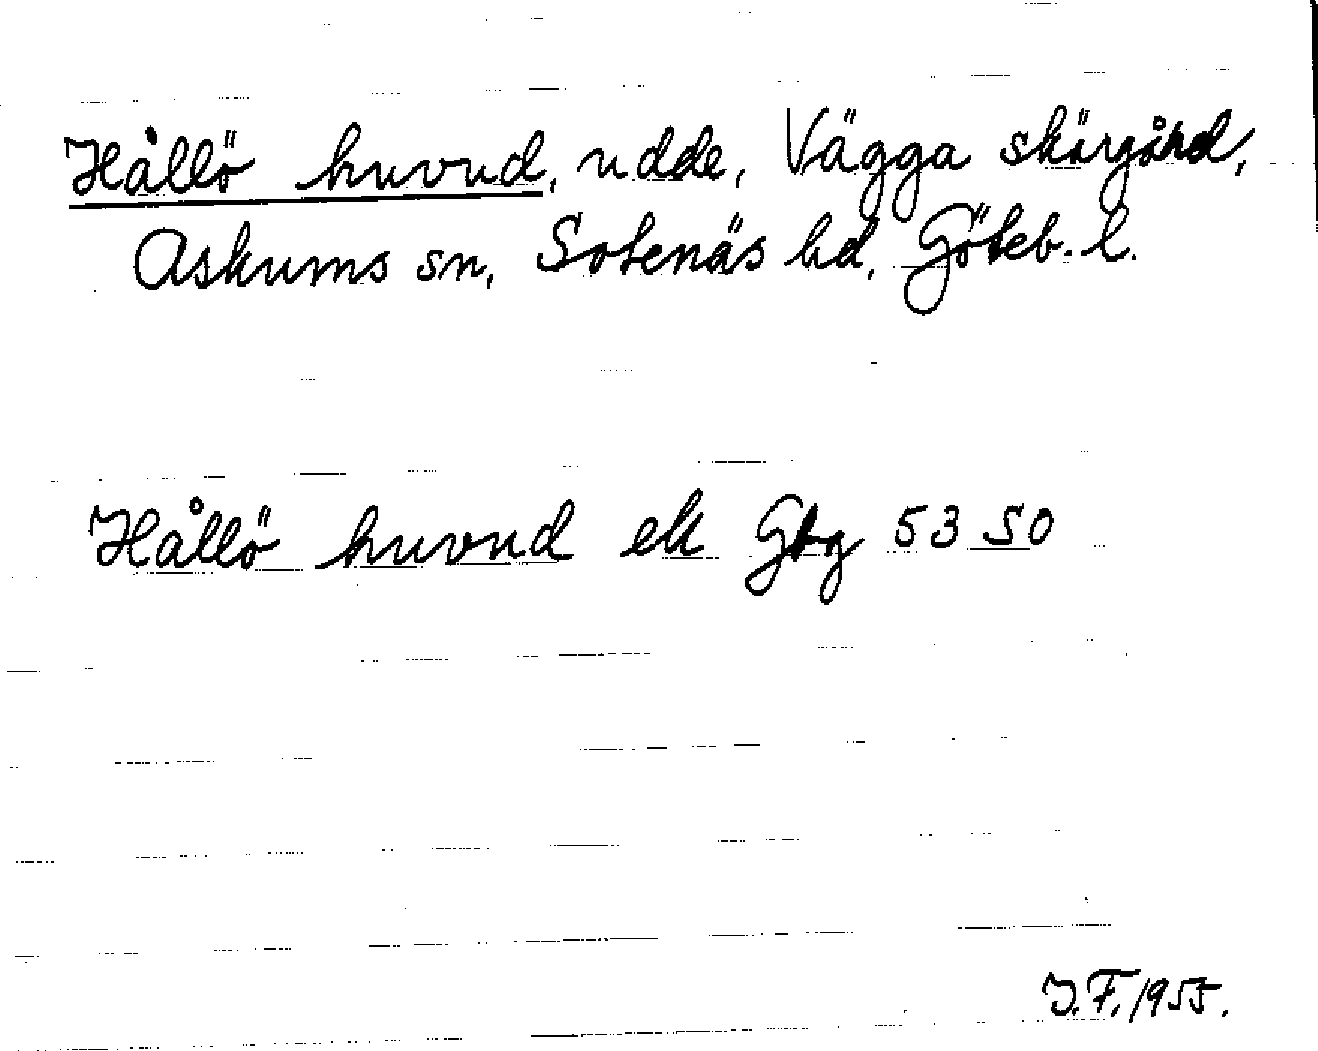 Hållö huvud, udde, Vägga skärgård,
Askums sn, Sotenäs hd, Göteb. l.
Hållö huvud ek Gbg 53 SO
J.F. 1955.